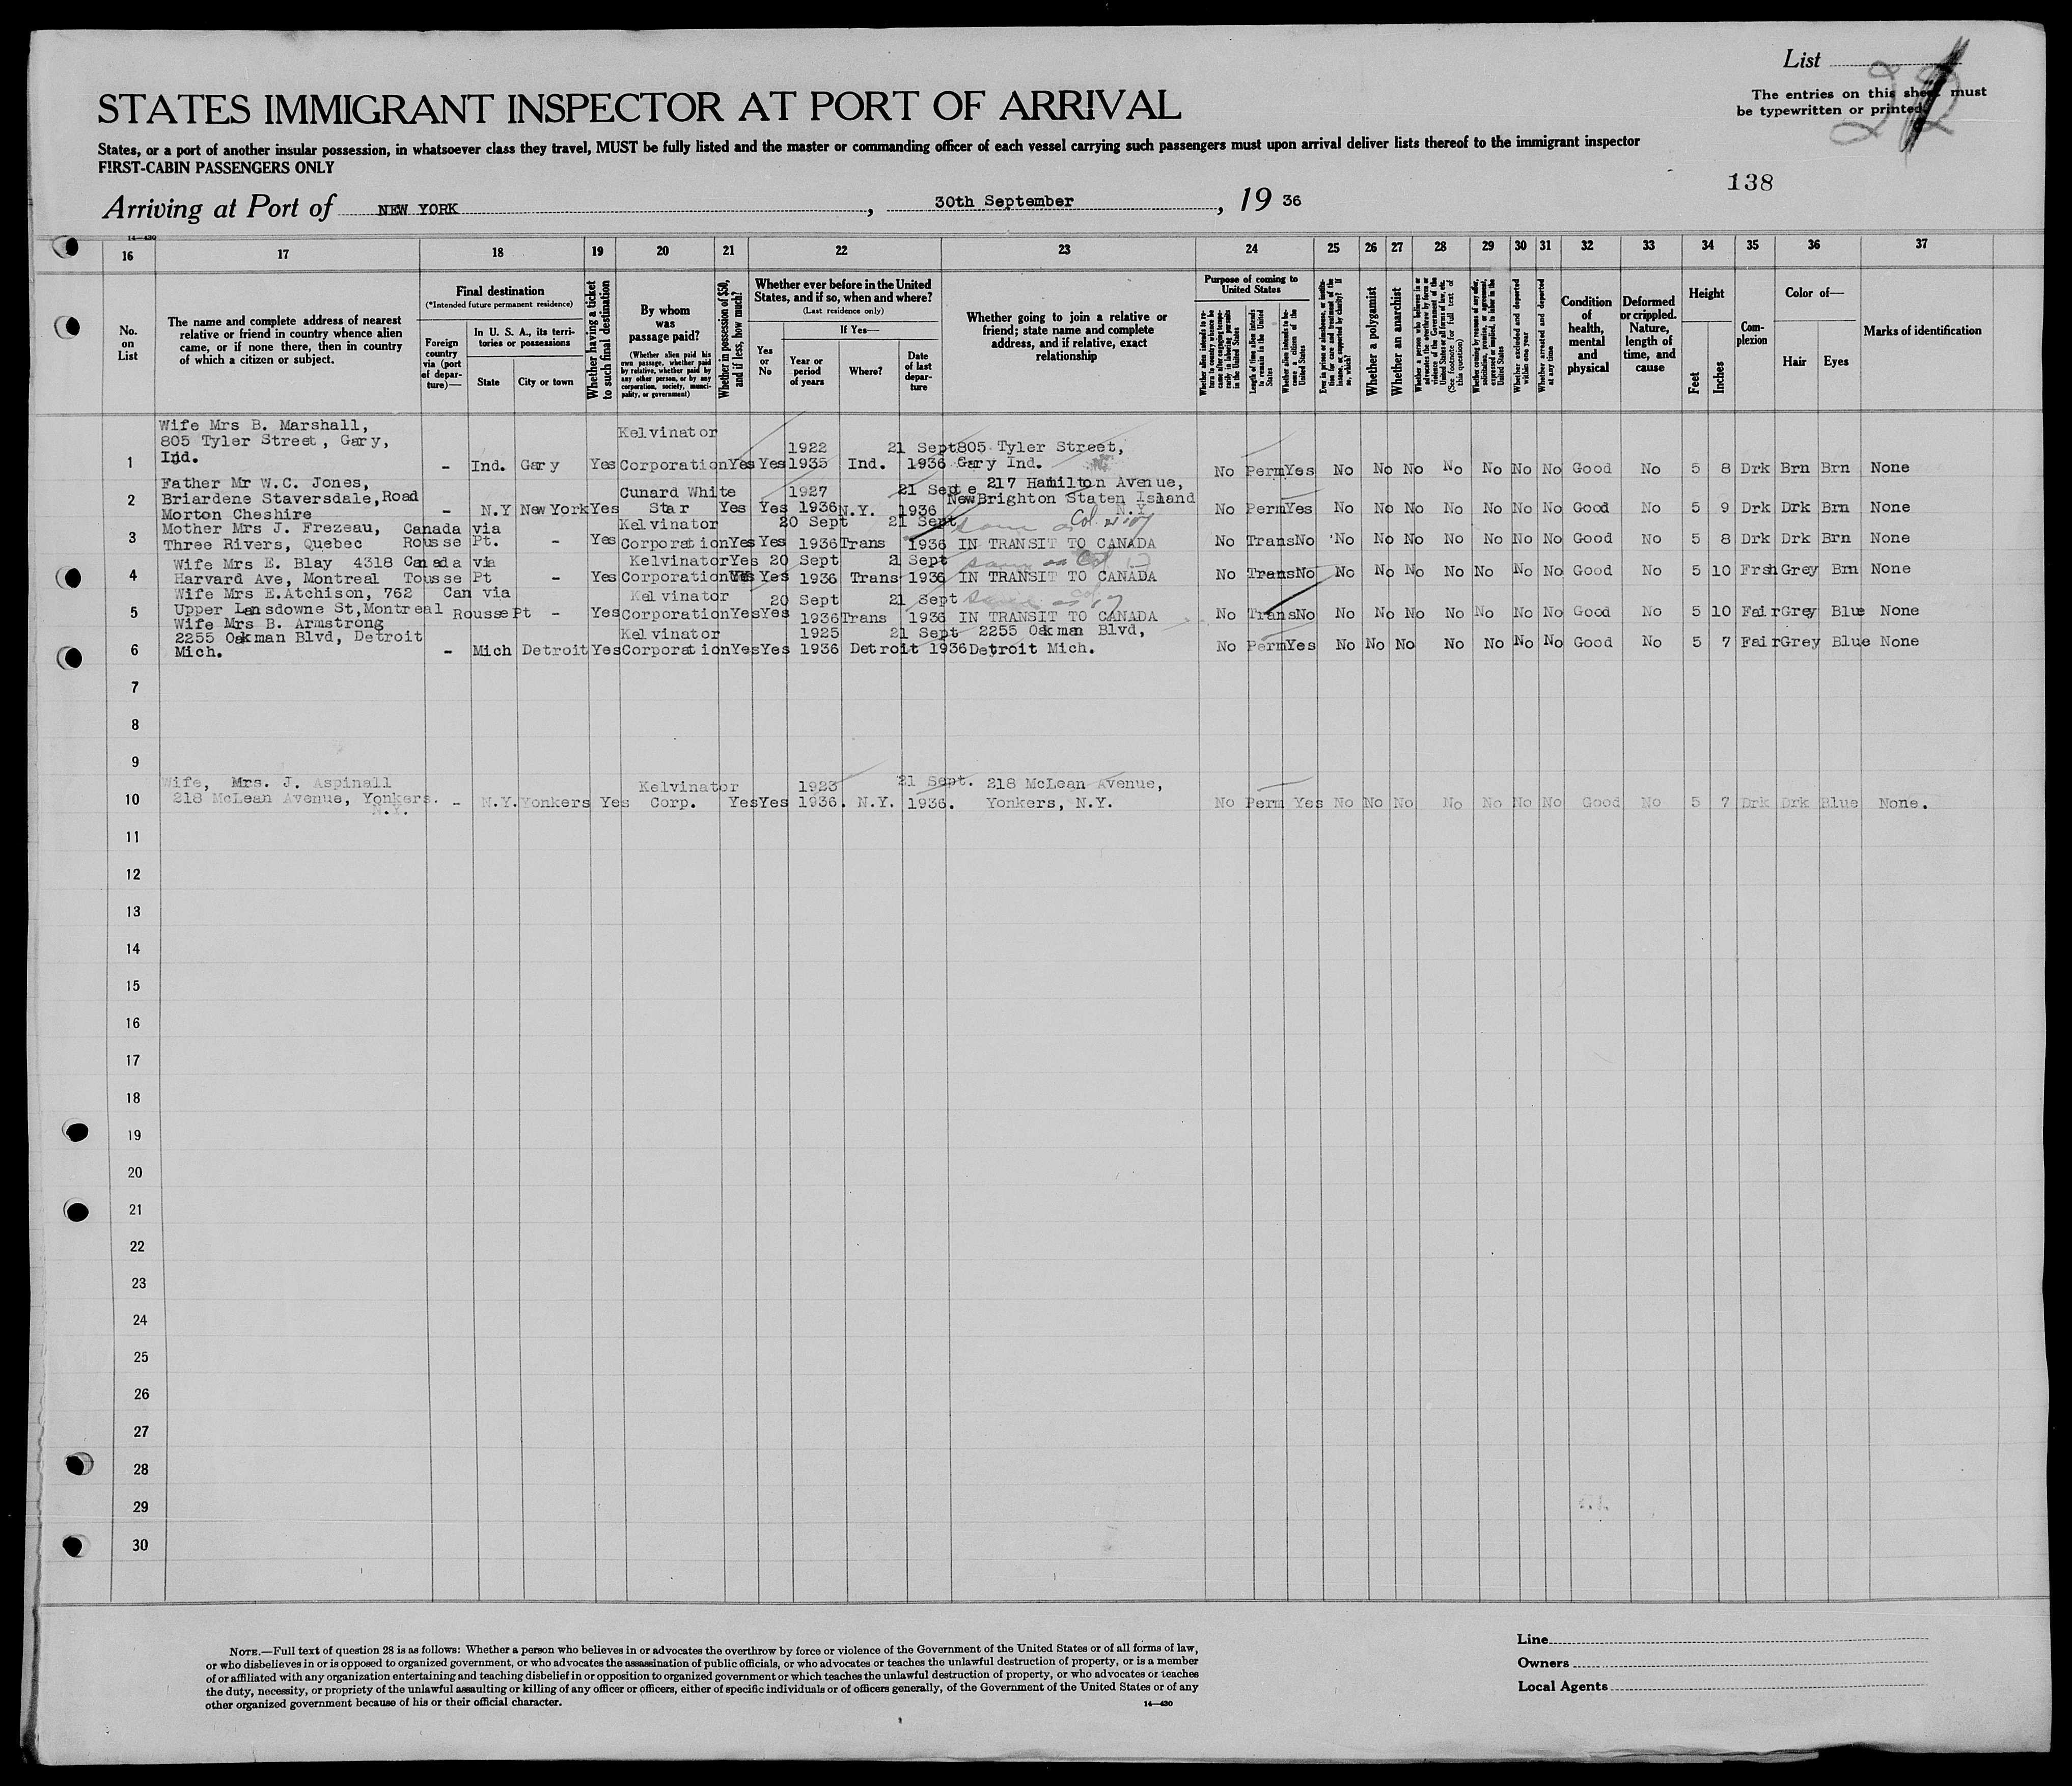 List
The entries on this sheet must
be typewritten or printed
STATES IMMIGRANT INSPECTOR AT PORT OF ARRIVAL
States, or a port of another insular possession, in whatsoever class they travel, MUST be fully listed and the master or commanding officer of each vessel carrying such passengers must upon arrival deliver lists thereof to the immigrant inspector
FIRST-CABIN PASSENGERS ONLY
138
Arriving at Port of NEW YORK, 30th September, 19 36
14—430
16 17 18 19 20 21 22 23 24 25 26 27 28 29 30 31 32 33 34 35 36 37
No. on List
The name and complete address of nearest
relative or friend in country whence alien
came, or if none there, then in country
of which a citizen or subject.
Final destination
(*Intended future permanent residence)
Foreign country via (port of departure)—
In U. S. A., its territories or possessions
State
City or town
Whether having a ticket to such final destination
By whom was passage paid?
(Whether alien paid his own passage, whether paid by relative, whether paid by any other person, or by any corporation, society, municipality, or government)
Whether in possession of $50, and if less, how much?
Whether ever before in the United States, and if so, when and where?
(Last residence only)
If Yes—
Yes or No
Year or period of years
Where?
Date of last departure
Whether going to join a relative or
friend; state name and complete
address, and if relative, exact
relationship
Purpose of coming to United States
Length of time alien intends to remain in the United States
Whether alien intends to become a citizen of the United States
Whether a polygamist
Whether an anarchist
(See footnote for full text of this question)
Whether excluded and deported within one year
Whether arrested and deported at any time
Condition of health, mental and physical
Deformed or crippled. Nature, length of time, and cause
Height
Feet
Inches
Complexion
Color of—
Hair
Eyes
Marks of identification
Wife Mrs B. Marshall, Kelvinator 1922 21 Sept 805 Tyler Street,
805 Tyler Street, Gary,
1 Ind. - Ind. Gary Yes Corporation Yes Yes 1935 Ind. 1936 Gary Ind. No Perm Yes No No No No No No No Good No 5 8 Drk Brn Brn None
Father Mr W.C. Jones, 217 Hamilton Avenue,
2 Briardene Staversdale, Road Cunard White 1927 21 Sept New Brighton Staten Island
Morton Cheshire - N.Y New York Yes Star Yes Yes 1936 N.Y. 1936 N.Y No Perm Yes No No No No No No No Good No 5 9 Drk Drk Brn None
Mother Mrs J. Frezeau, Canada via Kelvinator 20 Sept 21 Sept same as Col.
3 Three Rivers, Quebec Rousse Pt. - Yes Corporation Yes Yes 1936 Trans 1936 IN TRANSIT TO CANADA No Trans No No No No No No No No Good No 5 8 Drk Drk Brn None
Wife Mrs E. Blay 4318 Canada via Kelvinator Yes 20 Sept 21 Sept same as Col
4 Harvard Ave, Montreal Tousse Pt - Yes Corporation Yes Yes 1936 Trans 1936 IN TRANSIT TO CANADA No Trans No No No No No No No No Good No 5 10 Frsh Grey Brn None
Wife Mrs E.Atchison, 762 Can via Kelvinator 20 Sept 21 Sept same as
5 Upper Lansdowne St, Montreal Rousse Pt - Yes Corporation Yes Yes 1936 Trans 1936 IN TRANSIT TO CANADA No Trans No No No No No No No No Good No 5 10 Fair Grey Blue None
Wife Mrs B. Armstrong
2255 Oakman Blvd, Detroit Kelvinator 1925 21 Sept 2255 Oakman Blvd,
6 Mich. - Mich Detroit Yes Corporation Yes Yes 1936 Detroit 1936 Detroit Mich. No Perm Yes No No No No No No No Good No 5 7 Fair Grey Blue None
7
8
9
Wife, Mrs. J. Aspinall Kelvinator 1923 21 Sept. 218 McLean Avenue,
10 218 McLean Avenue, Yonkers. - N.Y. Yonkers Yes Corp. Yes Yes 1936. N.Y. 1936. Yonkers, N.Y. No Perm Yes No No No No No No No Good No 5 7 Drk Drk Blue None.
N.Y.
11
12
13
14
15
16
17
18
19
20
21
22
23
24
25
26
27
28
29
30
NOTE.—Full text of question 28 is as follows: Whether a person who believes in or advocates the overthrow by force or violence of the Government of the United States or of all forms of law,
or who disbelieves in or is opposed to organized government, or who advocates the assassination of public officials, or who advocates or teaches the unlawful destruction of property, or is a member
of or affiliated with any organization entertaining and teaching disbelief in or opposition to organized government or which teaches the unlawful destruction of property, or who advocates or teaches
the duty, necessity, or propriety of the unlawful assaulting or killing of any officer or officers, either of specific individuals or of officers generally, of the Government of the United States or of any
other organized government because of his or their official character.
14—430
Line
Owners
Local Agents